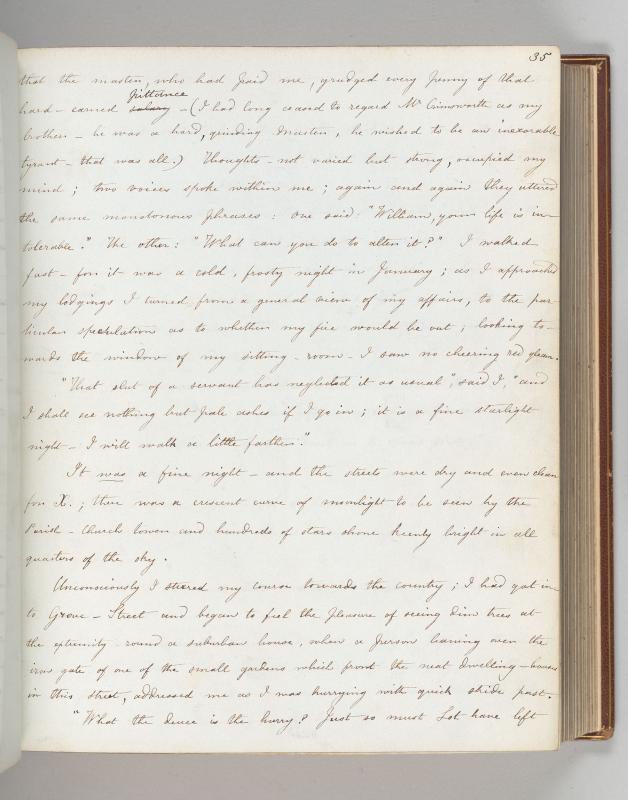 35
that the master, who had paid me, grudged every penny of that
pittance
hard-earned salary - (I had long ceased to regard Mr Crimsworth as my
brother - he was a hard, grinding master, he wished to be an inexorable
tyrant - that was all.) Thoughts - not varied but strong, occupied my
mind; two voices spoke within me; again and again they uttered
the same monotonous phrases: one said: "William, your life is in-
tolerable." The other: "What can you do to alter it?" I walked
fast - for it was a cold, frosty night in January; as I approached
my lodgings I turned from a general view of my affairs, to the par-
ticular speculation as to whether my fire would be out; looking to-
wards the window of my sitting-room - I saw no cheering red gleam.
"That slut of a servant has neglected it as usual", said I, "and
I shall see nothing but pale ashes if I go in; it is a fine starlight
night - I will walk a little farther."
It was a fine night - and the streets were dry and even clean
for X.; there was a crescent curve of moonlight to be seen by the
Parish-Church tower and hundreds of stars shone keenly bright in all
quarters of the sky.
Unconsciously I steered my course towards the country; I had got in-
to Grove-Street and began to feel the pleasure of seeing dim trees at
the extremity round a suburban house, when a person leaning over the
iron gate of one of the small gardens which front the neat dwelling-houses
in this street, addressed me as I was hurrying with quick stride past.
"What the deuce is the hurry? Just so must Lot have left